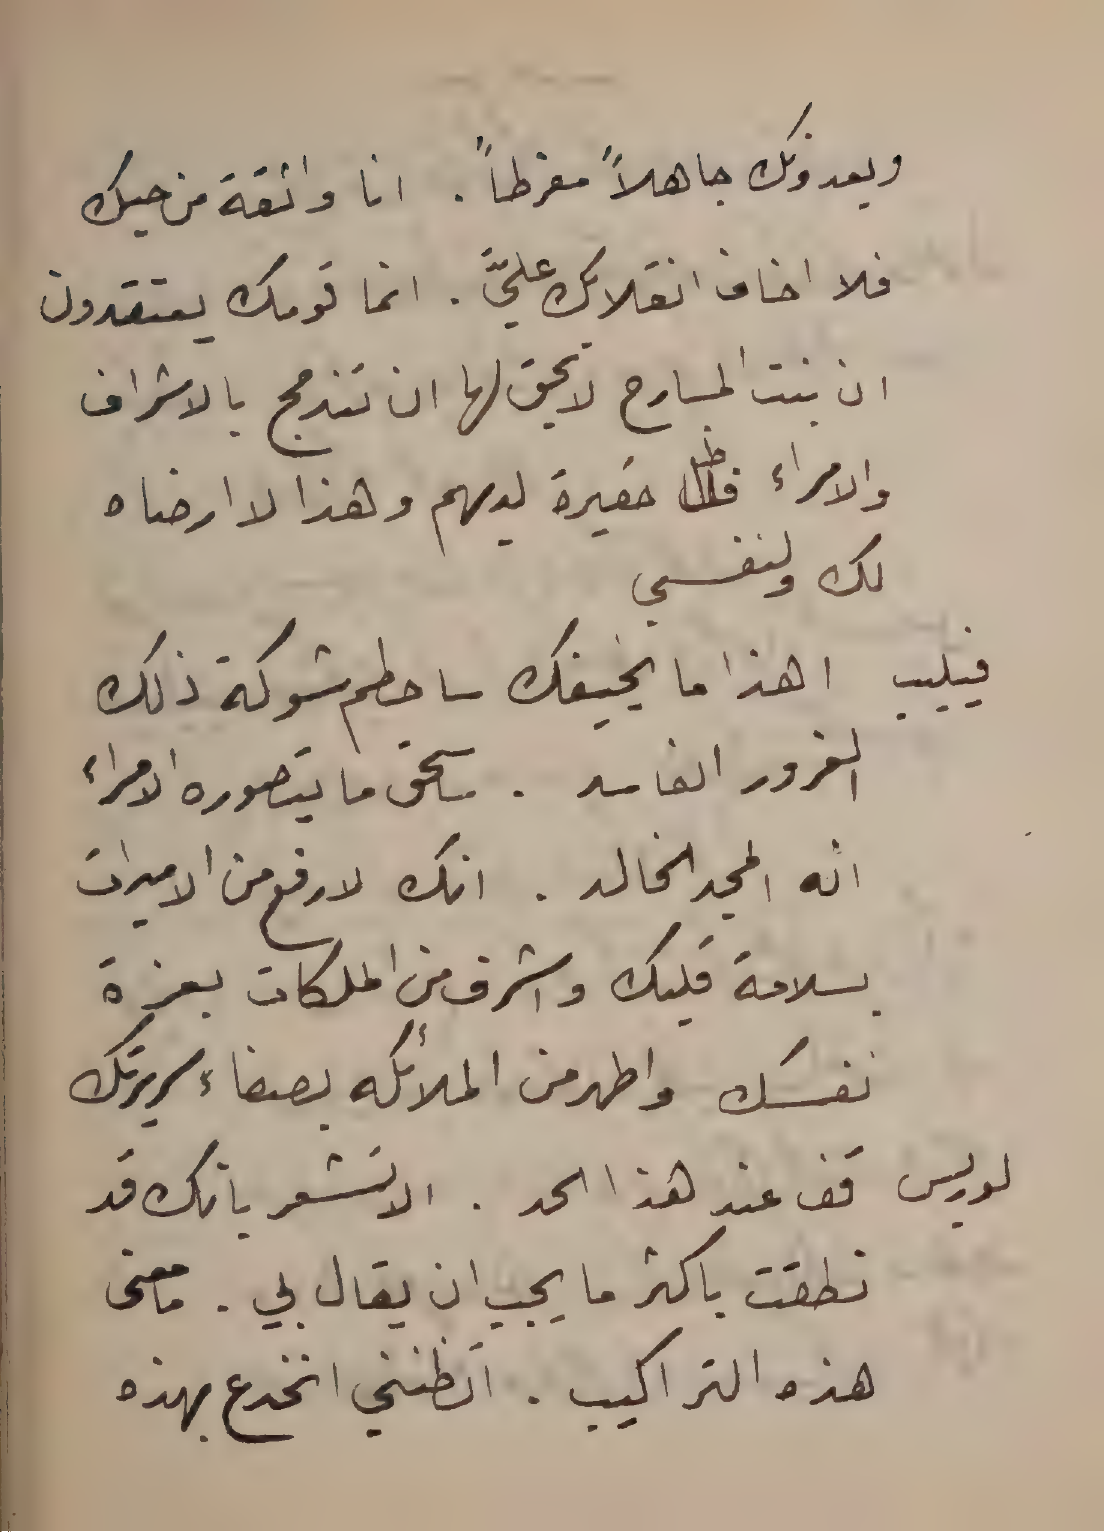 ويعدونك جاهلاً مفرطاً . انا واثقة من حبك
فلا اخاف انقلابك عليَّ . انما قومك يعتقدون
ان بنت المسارح لا يحق لها ان تندمج بالاشراف
والامراء فاظل حقيرة لديهم وهذا لا ارضاه
لك ولنفسي
فيليب اهذا ما يخيفك ساحطم شوكة ذلك
الغرور الفاسد . ساسحق ما يتصوره الامراء
انه المجد الخالد . انك لارفع من الاميرات
بسلامة قلبك واشرف من الملكات بعزة
نفسك واطهر من الملائكه بصفاء سريرتك
لوريس قف عند هذا الحد . الا تشعر بانك قد
نطقت باكثر ما يجب ان يقال لي . ما معنى
هذه التراكيب . اتظنني انخدع بهذه